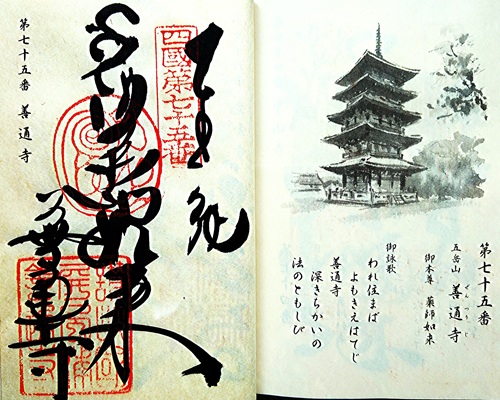 第七十五番
五岳山 善通寺
ぜんつうじ
御本尊 薬師如来
御詠歌
われ住まば
よもきえはてじ
善通寺
深きちかいの
法のともしび
四國第七十五番
奉納
薬師如来
善通寺
第七十五番 善通寺